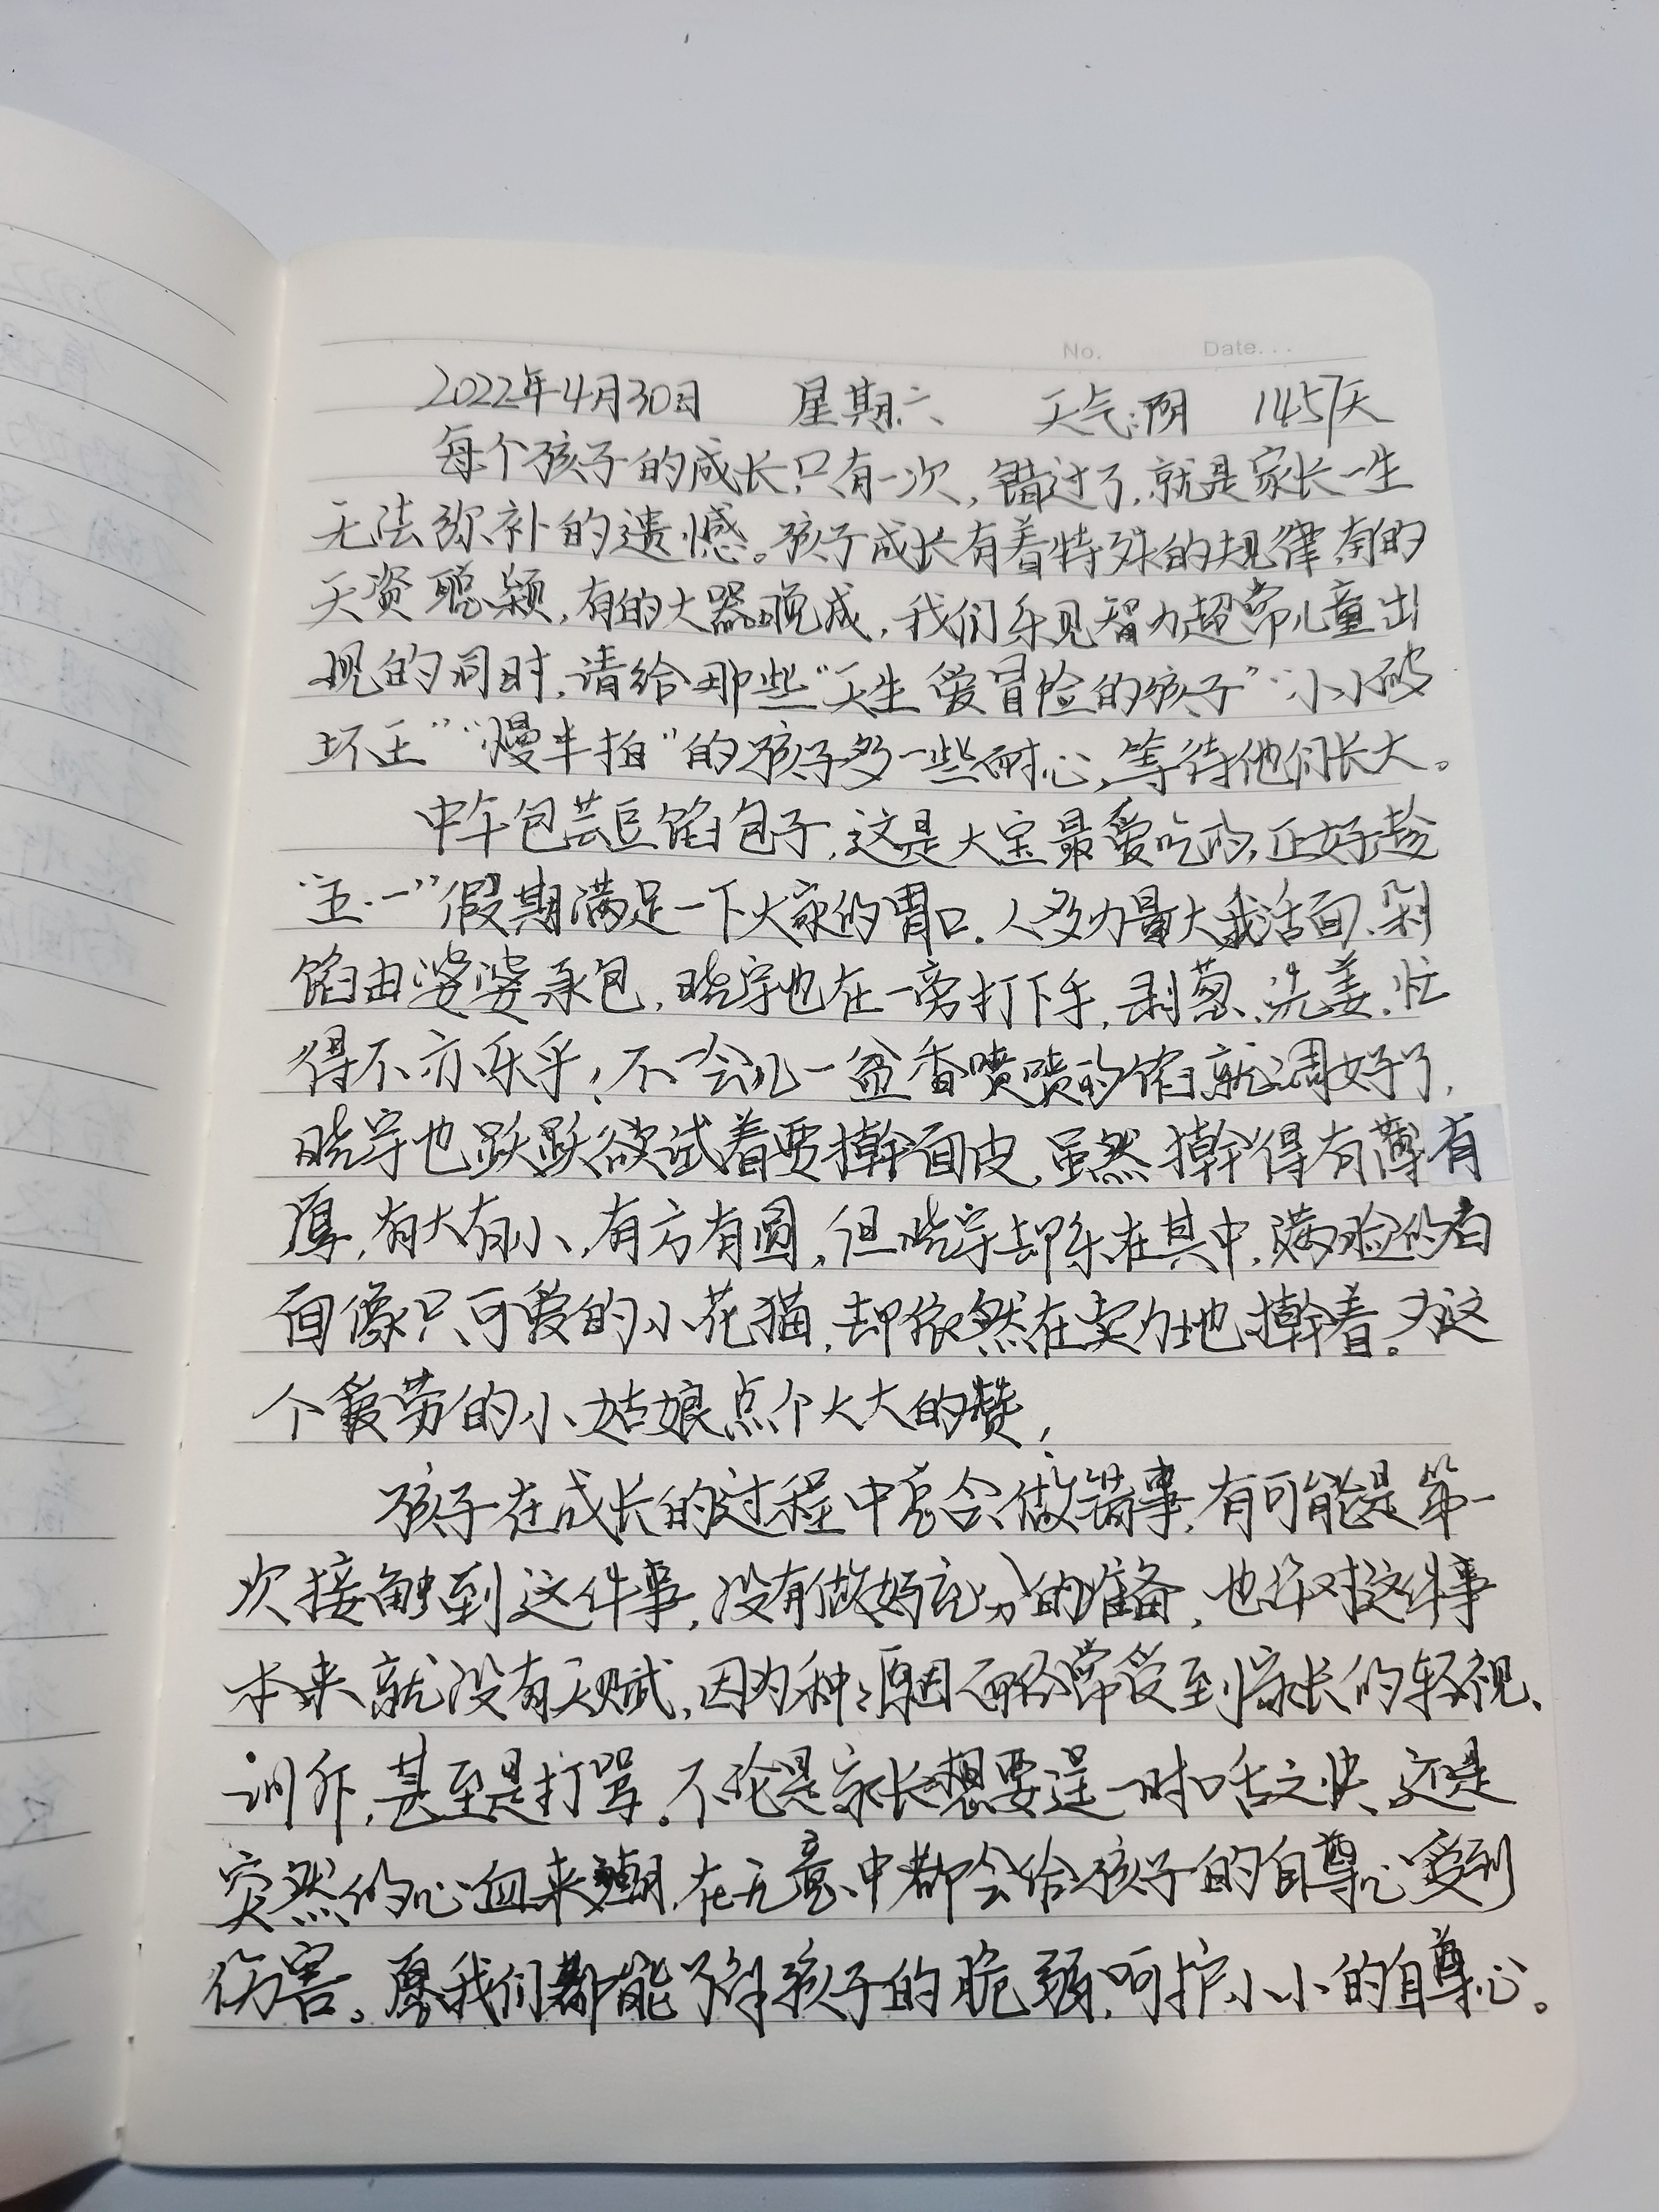 No. Date...
2022年4月30日 星期六 天气:阴 1457天
每个孩子的成长只有一次,错过了,就是家长一生
无法弥补的遗憾。孩子成长有着特殊的规律,有的
天资聪颖,有的大器晚成,我们乐见智力超常儿童出
现的同时,请给那些“天生爱冒险的孩子”“小小破
坏王”“慢半拍”的孩子多一些耐心,等待他们长大。
中午包芸豆馅包子,这是大宝最爱吃的,正好趁
“五.一”假期满足一下大家的胃口.人多力量大我活面、剁
馅由婆婆承包,晓宇也在一旁打下手,剥葱、洗姜,忙
得不亦乐乎!不一会儿一盆香喷喷的馅就调好了,
晓宇也跃跃欲试着要擀面皮,虽然擀得有薄有
厚,有大有小,有方有圆,但晓宇却乐在其中,满脸的白
面像只可爱的小花猫,却依然在卖力地擀着。为这
个爱劳的小姑娘点个大大的赞!
孩子在成长的过程中总会做错事,有可能是第一
次接触到这件事,没有做好充分的准备,也许对这件事
本来就没有天赋,因为种种原因而经常受到家长的轻视、
训斥,甚至是打骂。不论是家长想要逞一时口舌之快,还是
突然的心血来潮,在无意中都会给孩子的自尊心受到
伤害。愿我们都能了解孩子的脆弱,呵护小小的自尊心。